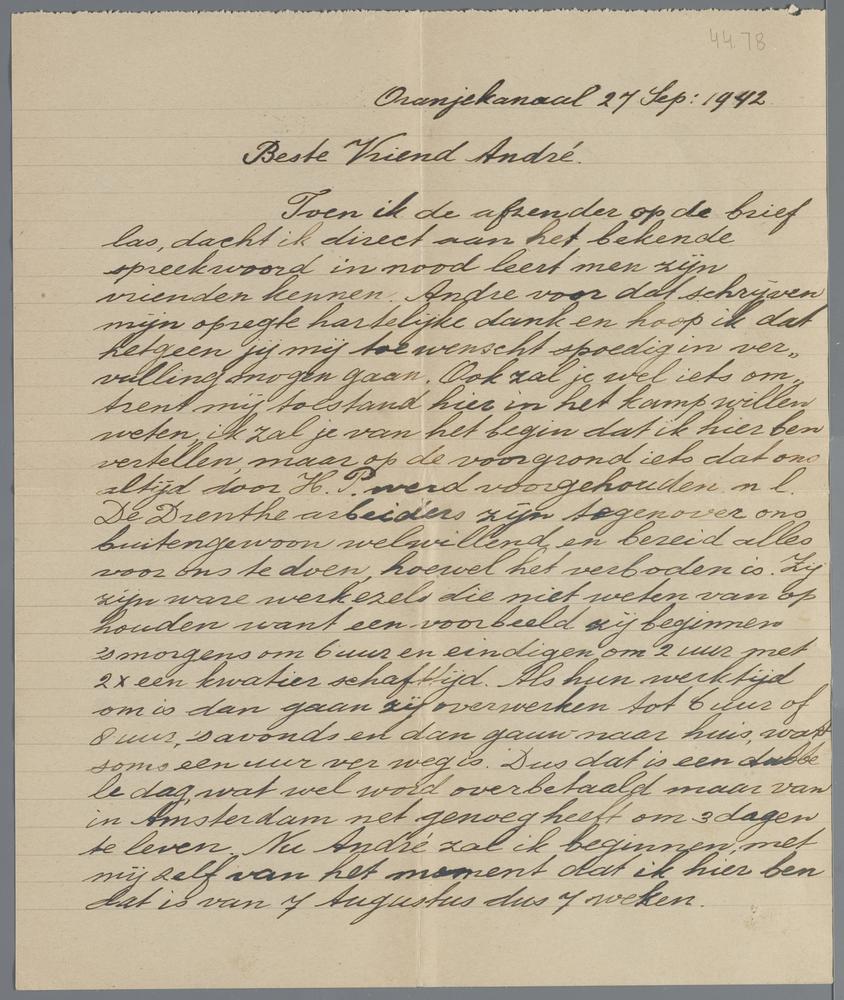 44.78
Oranjekanaal 27 Sep: 1942
Beste Vriend André.
Toen ik de afzender op de brief
las, dacht ik direct aan het bekende
spreekwoord in nood leert men zijn
vrienden kennen. Andre voor dat schrijven
mijn opregte hartelijke dank en hoop ik dat
hetgeen jij mij toewenscht spoedig in ver„
vulling mogen gaan. Ook zal je wel iets om„
trent mij toestand hier in het kamp willen
weten, ik zal je van het begin dat ik hier ben
vertellen, maar op de voorgrond iets dat ons
altijd door H. P. werd voorgehouden n l.
De Drenthe arbeiders zijn tegenover ons
buitengewoon welwillend en bereid alles
voor ons te doen, hoewel het verboden is. Zij
zijn ware werkezels die niet weten van op
houden want een voorbeeld zij beginnen
's morgens om 6 uur en eindigen om 2 uur met
2 x een kwatier schafttijd. Als hun werktijd
om is dan gaan zij overwerken tot 6 uur of
8 uur, 's avonds en dan gauw naar huis, wat
soms een uur ver weg is. Dus dat is een dubbe
le dag, wat wel word overbetaald maar van
in Amsterdam net genoeg heeft om 3 dagen
te leven. Nu André zal ik beginnen, met
mij zelf van het moment dat ik hier ben
dat is van 7 Augustus dus 7 weken.